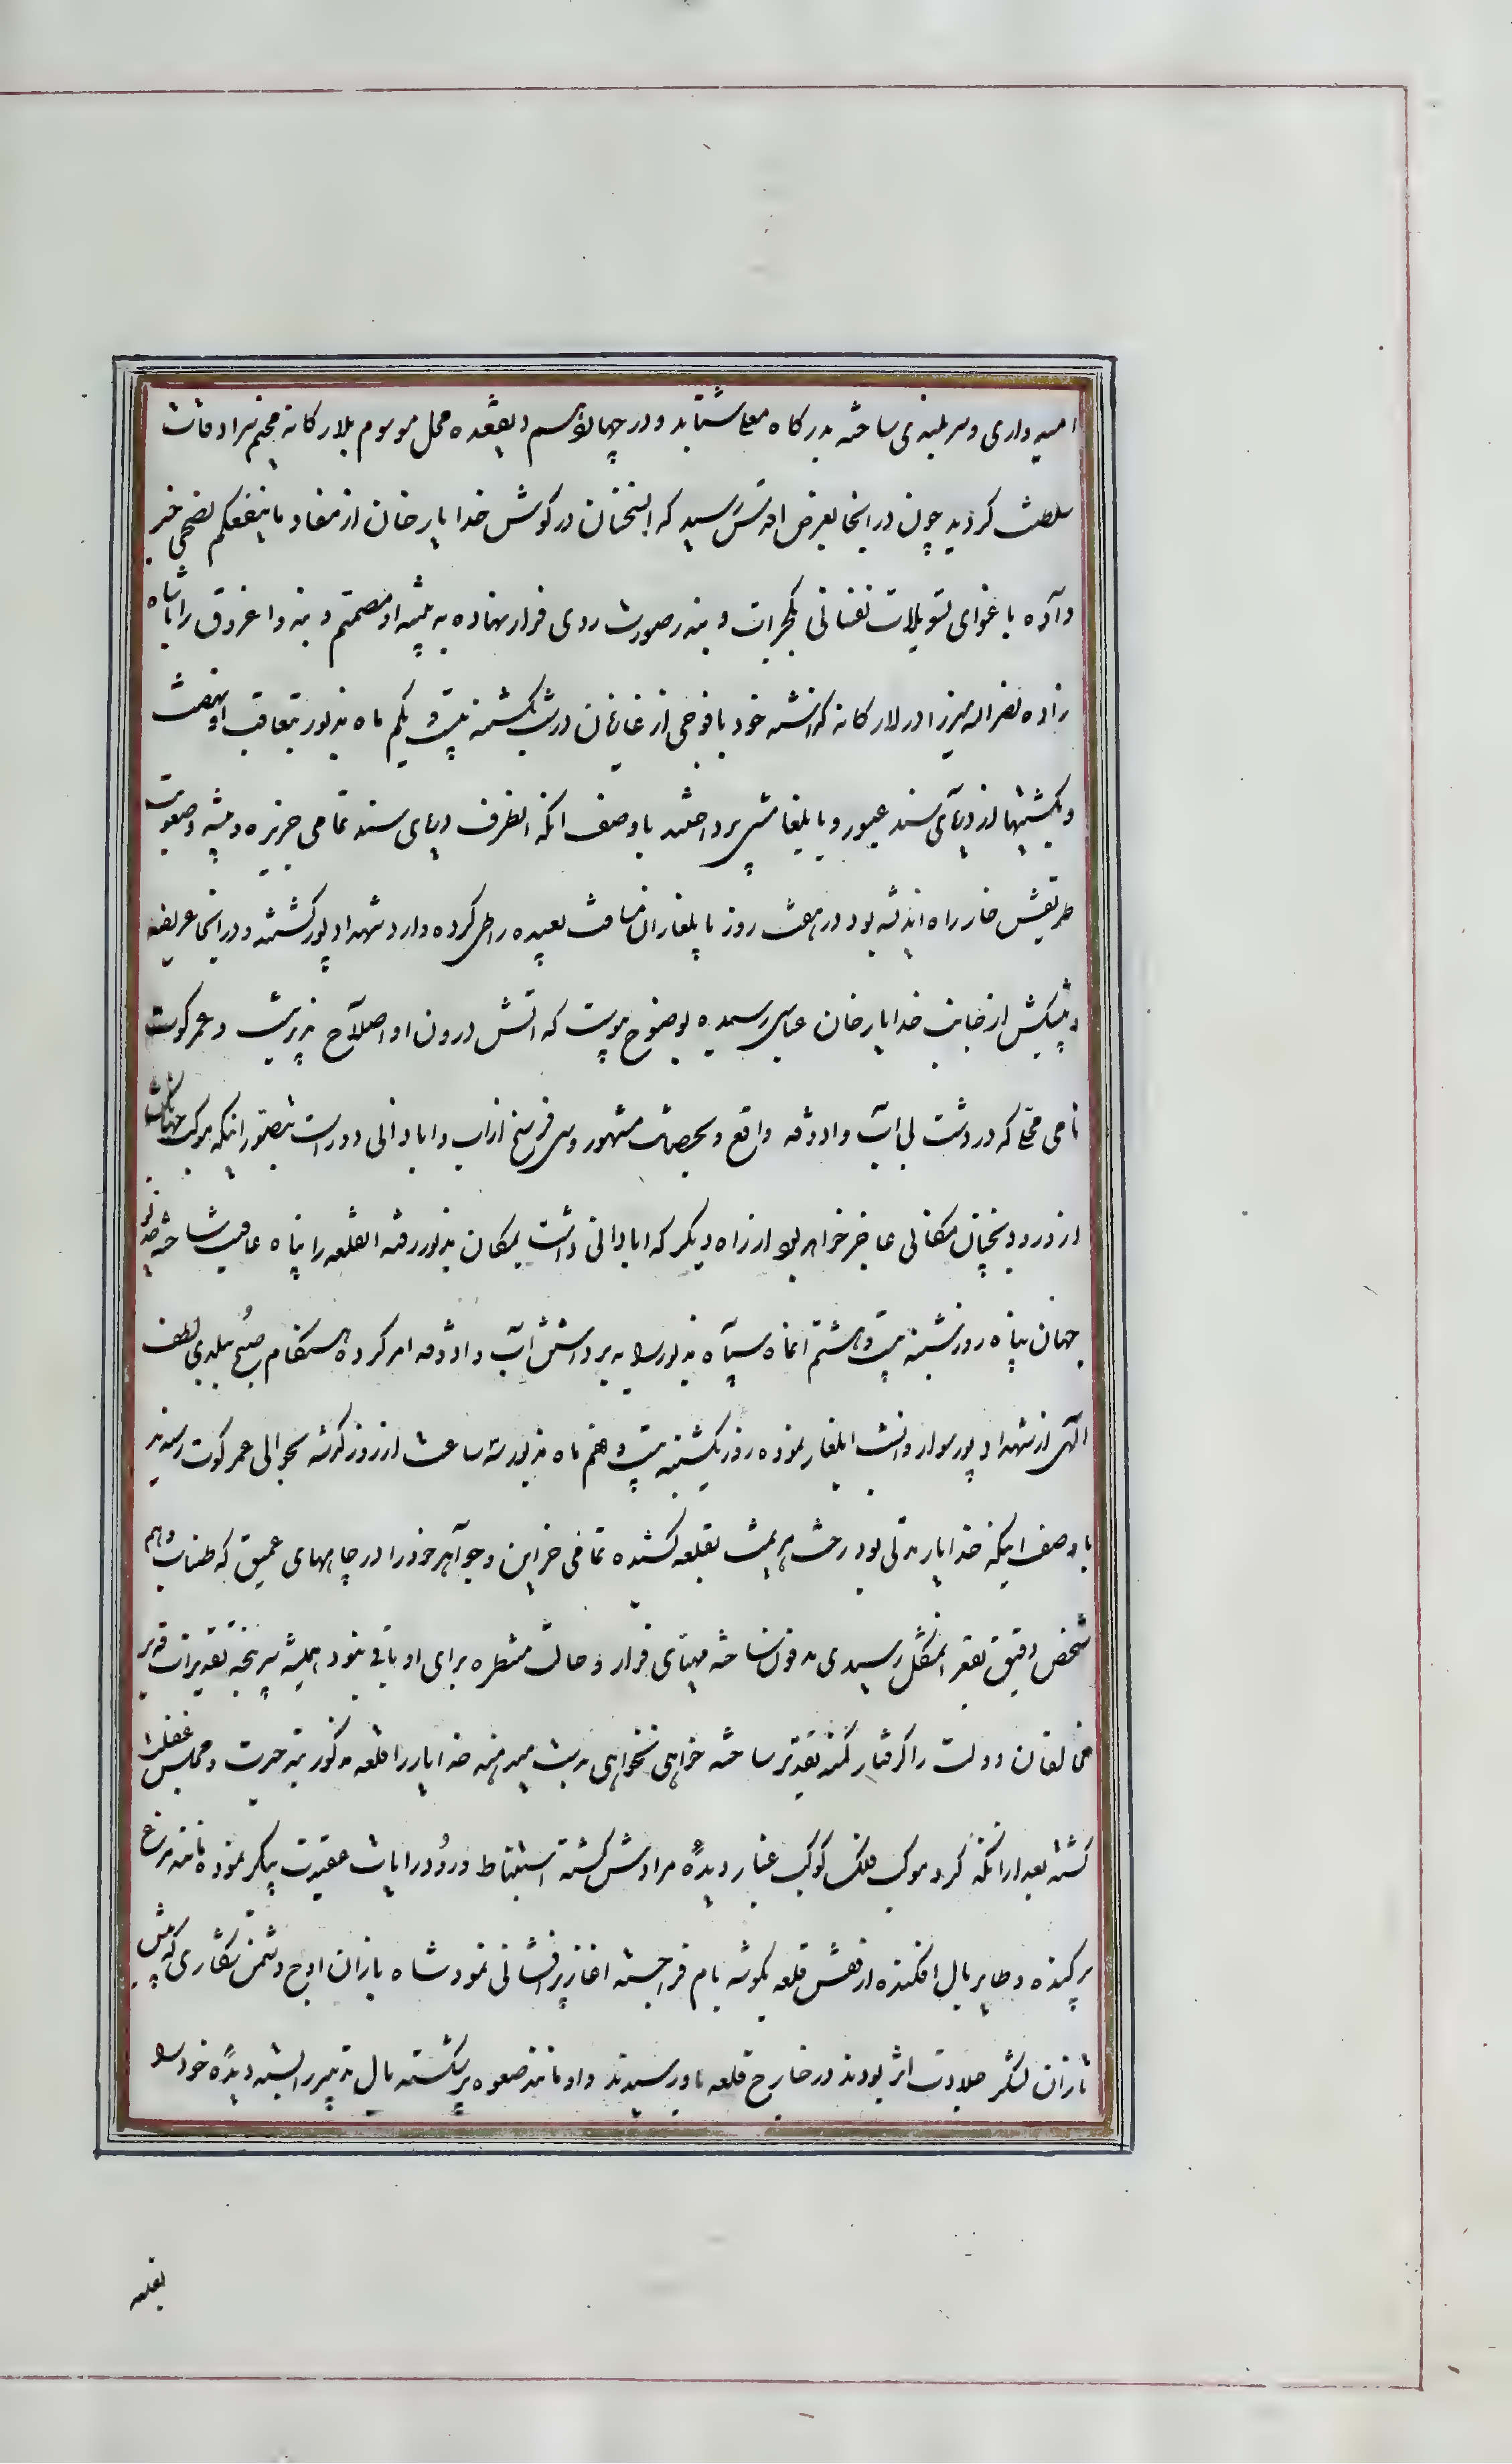 امیدواری و سربلندی ساخته بدرکاه معلی شتابد و در چهاردهم ذیقعده محل موسوم بلارکانه مخیم سرادقات
سلطنت کردید چون در انجا بعرض اقدس رسید که اینسخنان در کوش خدایارخان از مفاد ما ینفعکم نصحی خبر
داده باغوای تسویلات نفسانی بکجرات و بندر صورت روی فرار نهاده به پیشه او مصمتم و بنه و اغروق را با شاه
زاده نصراله میرزا در لارکانه کذاشته خود با فوجی از غازیان در شب یکشنبه بیست و یکم ماه مذبور بتعاقب او نهضت
و بکشتیها از دریای سند عبور و بایلغار پرداختند با وصف انکه انطرف دریای سند تمامی جزیره و بیشه و صعوبت
طریقش خار راه اندیشه بود در هفت روز بایلغار ان مسافت بعیده را طی کرده وارد شهداد پور کشتند و در انجا عریضه
و پیشکش از جانب خدایارخان عباسی رسیده بوضوح پیوست که اتش درون او اصلاح پذیر نیست و عمرکوت
نامی محلی که در دشت بی آب و اذوقه واقع و بحصانت مشهور و سی فرسخ از اب و ابادانی دور است بتصور اینکه موکب جهانکشا
از ورود بچنان مکانی عاجز خواهد بود از راه دیکر که ابادانی داشت بمکان مذبور رفته انقلعه را پناه عافیت ساخته خدیو
جهان پناه روز شنبه بیست و هشتم انماه سپاه مذبور را به برداشتن آب و اذوقه امر کرده هنکام صبح ببلدی لطف
الهی از شهداد پور سوار و شب ایلغار نموده روز یکشنبه بیست و نهم ماه مذبور سه ساعت از روز کذشته بحوالی عمرکوت رسیدند
با وصف اینکه خدایار مدتی بود رخت هزیمت بقلعه کشیده تمامی خزاین و جواهر خود را در چاههای عمیق که طناب وهم
شخص دقیق بقعر انمشکل رسیدی مدفون ساخته مهیای فرار و حالت منتظره برای او باقی نبود همیشه سرپنجه تقدیرات قدیر
مخالفان دولت را کرفتار کمند تقدیر ساخته خواهی نخواهی بدست میدهند خدایار را قلعه مذکور تیه حیرت و محبس غفلت
کشته بعد از انکه کرد موکب فلک کوکب غبار دیده مرادش کشته استنباط ورود رایات عقیدت پیکر نموده مانند مرغ
پر کنده و طایر بال افکنده از قفس قلعه بکوشه بام فرا جسته اغاز پرافشانی نمود شاه بازان اوج دشمن شکاری که پیش
تازان لشکر جلادت اثر بودند در خارج قلعه باو رسیدند و او مانند صعوه پرشکسته بال تدبیر را بسته دیده خود را
بقلعه